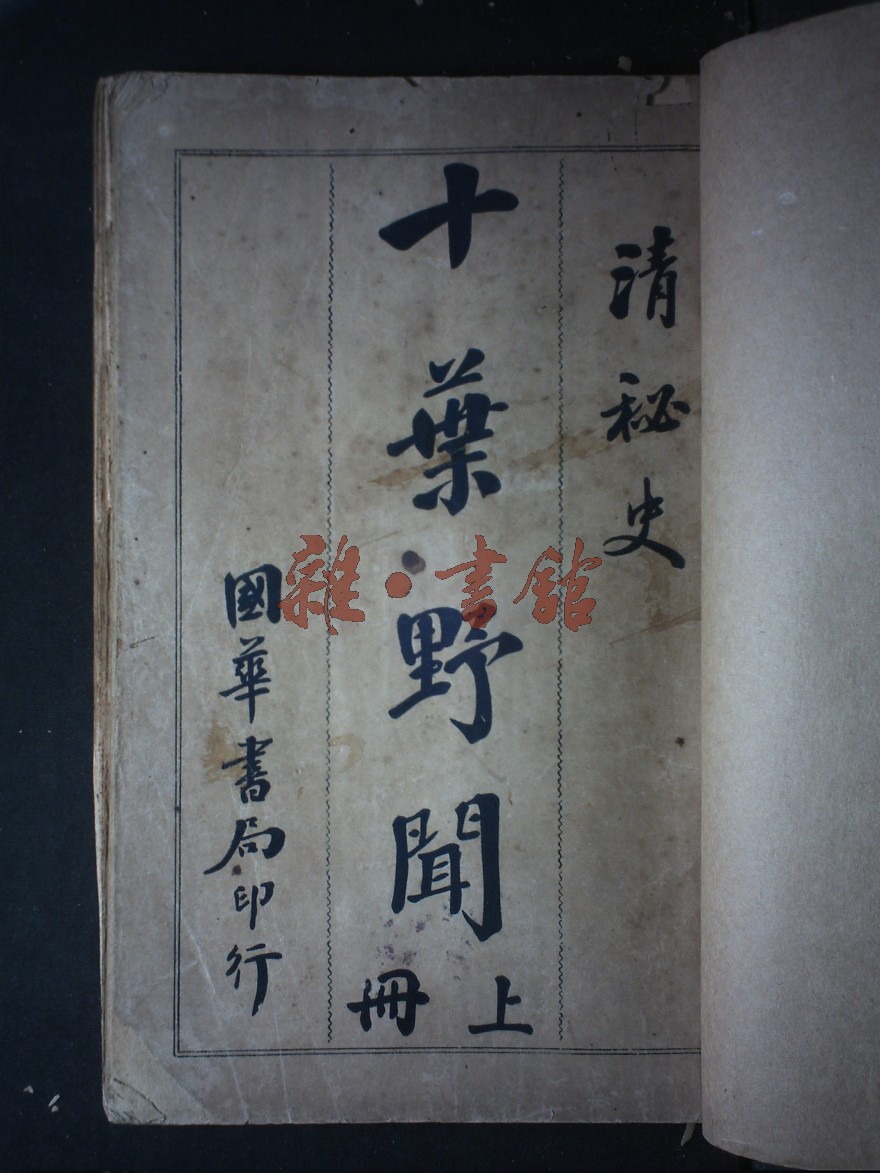 清秘史
十葉野聞
上冊
國華書局印行
雜·書館